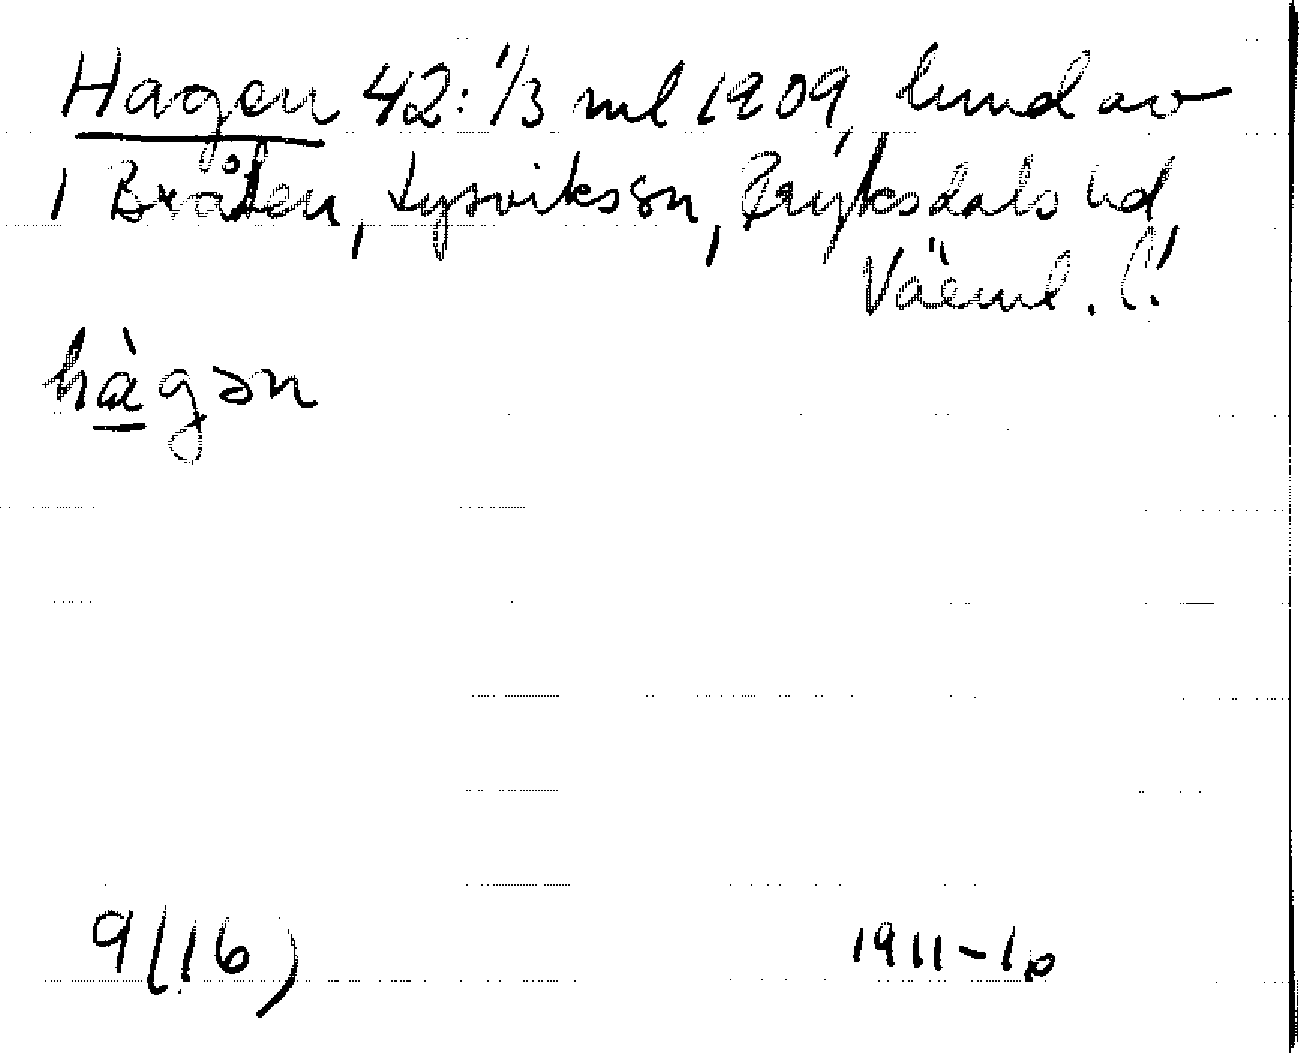 Hagen 42: 1/3 ml 1909, lund av
1 Bråten, Lysviks sn, Fryksdals hd
Värml. l.
hàgən
9(16)
1911-10